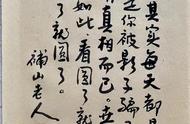 其实每天都是
你被影子骗
真相而已。
如此，看圆了
了就圆了。
山老人